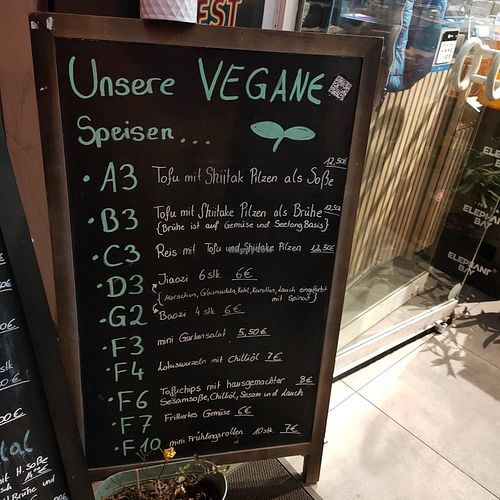 EST
Unsere VEGANE
Speisen...
• A3 Tofu mit Shiitak Pilzen als Soße 12,50€
• B3 Tofu mit Shiitake Pilzen als Brühe 12,50
{Brühe ist auf Gemüse und Seetang Basis}
• C3 Reis mit Tofu und Shiitake Pilzen 12,50€
• D3 Jiaozi 6 stk. 6€
{Morscheln, Glasnudeln, Kohl, Karotten, Lauch eingefärbt
mit Spinat}
• G2 Baozi 4 stk 6€
• F3 mini Gurkensalat 5,50€
• F4 Lotuswurzeln mit Chilliöl 7€
• F6 Tofuchips mit hausgemachter 8€
Sesamsoße, Chilliöl, Sesam und Lauch
• F7 Frittiertes Gemüse 6€
• F10 mini Frühlingsrollen 10 stk. 7€
ELEPHANT
BAY
ELEPHANT
BAY